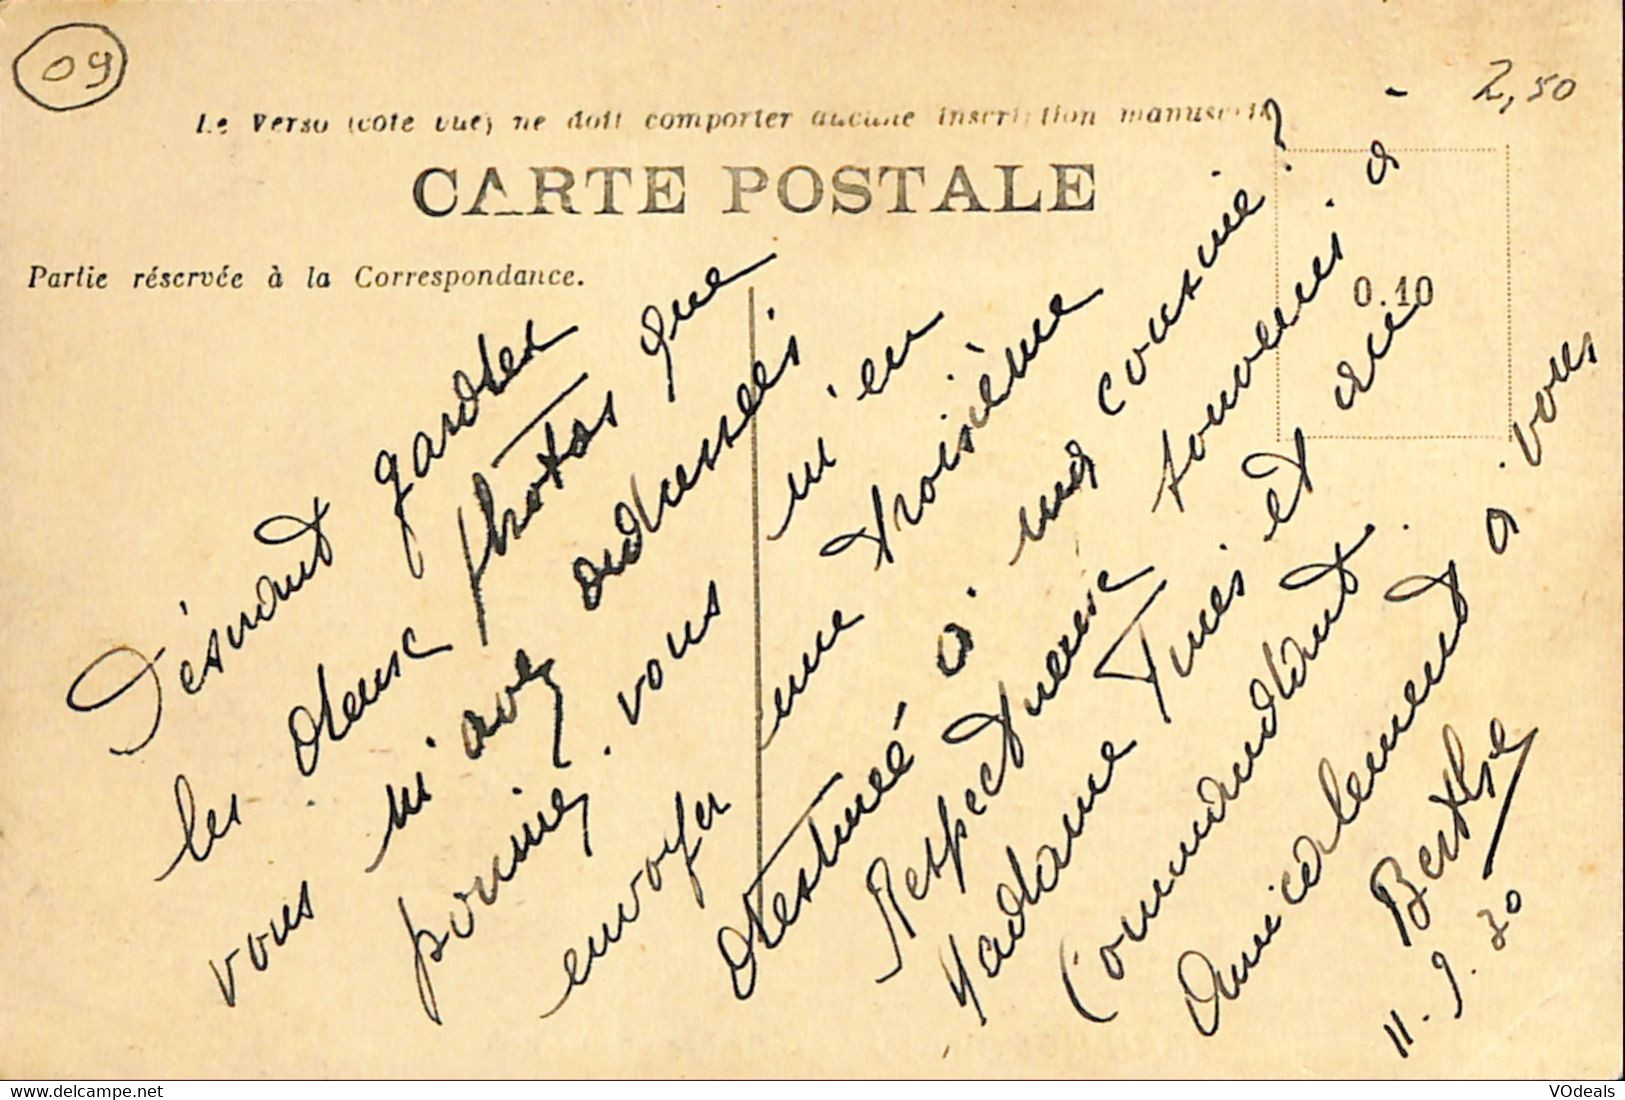 09
2,50
Le Verso (côté vue) ne doit comporter aucune inscription manuscrite
CARTE POSTALE
Partie réservée à la Correspondance.
0.10
Désirant garder
les deux photos que
vous m'avez adressées
pourriez-vous m'en
envoyer une troisième
destinée à ma cousine ?
Respectueux souvenir à -
Madame et au
Commandant.
Amicalement à vous
Berthe
11.9.30
https://www.delcampe.net
VOdeals